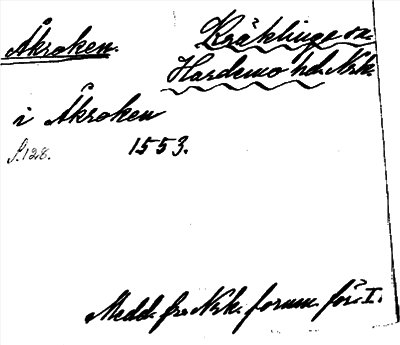 Åkroken.
Kräklinge sn.
Hardemo hd. Nrk.
i Åkroken
S. 128. 1553.
Medd. fr. Nrk. fornm. för. I.